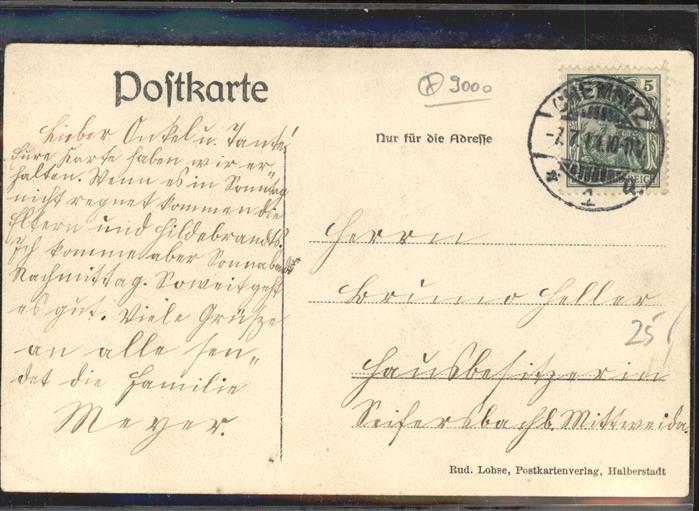 Postkarte
Nur für die Adresse
9000
5
CHEMNITZ
1
Lieber Onkel u. Tante!
Eure Karte haben wir er-
halten. Wenn es in Sonntag
nicht regnet kommen die
Eltern und Hildebrandts.
Ich komme aber Sonnabend
Nachmittag. Soweit geht
es gut. Viele Grüße
an alle sen-
det die Familie
Meyer.
Herrn
Bruno Heller
Hausbesitzer in
Seifersbach b. Mittweida.
25
Rud. Lohse, Postkartenverlag, Halberstadt